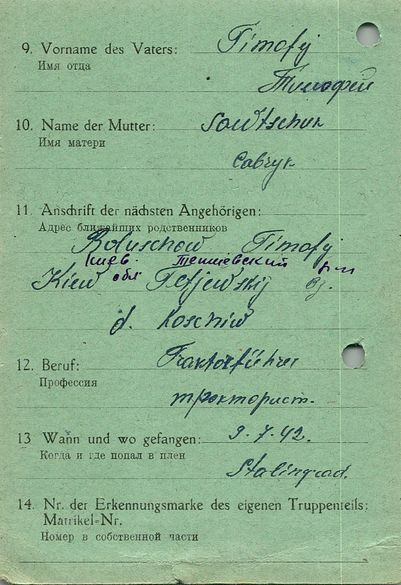 9. Vorname des Vaters: Timofij
Имя отца
Тимофей
10. Name der Mutter: Sawtschuk
Имя матери
Савчук
11. Anschrift der nächsten Angehörigen:
Адрес ближайших родственников
Timofij
киев. Тетиевский р-н
Kiew обл Tetjewskij
d. Koschiw
12. Beruf: Traktorführer
Профессия
тракторист.
13 Wann und wo gefangen: 9.7.42.
Когда и где попал в плен
Stalingrad.
14. Nr. der Erkennungsmarke des eigenen Truppenteils:
Matrikel-Nr.
Номер в собственной части